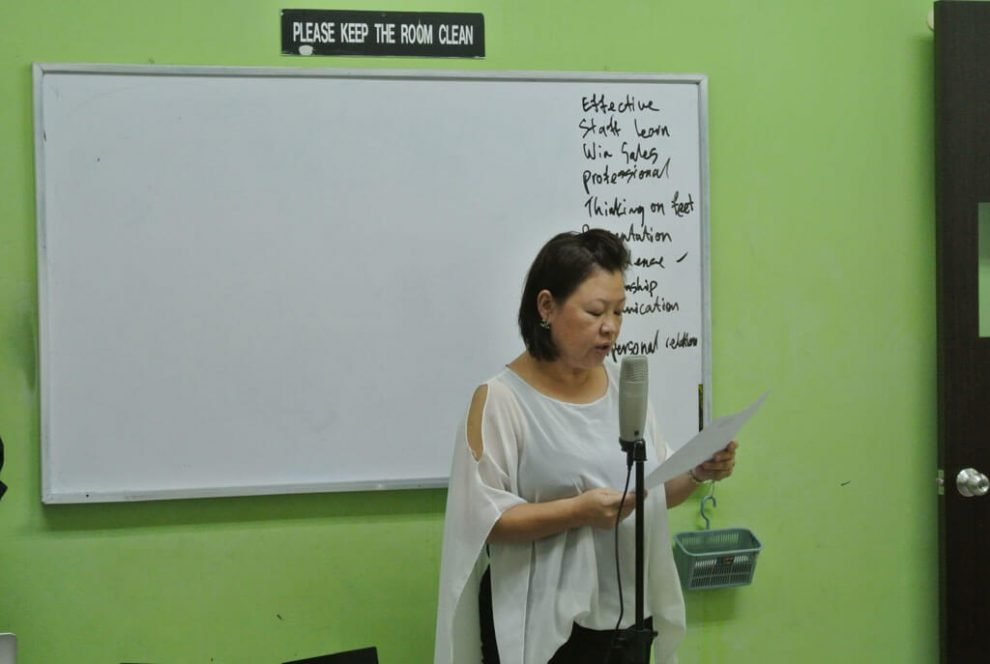 PLEASE KEEP THE ROOM CLEAN
Effective
Staff learn
Win Sales
professional
Thinking on feet
ntation
ence ✓
nship
nication
personal relation